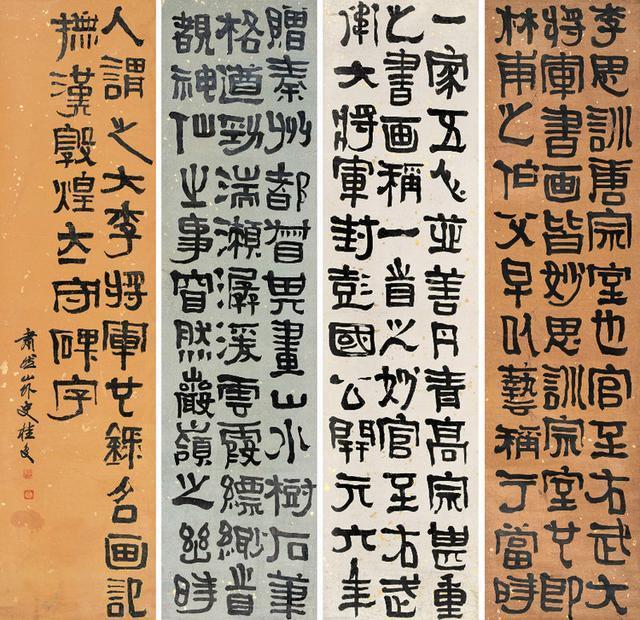 李思訓唐宗室也官至右武大
將軍書画皆妙思訓宗室也即
林甫之伯父早以藝稱于當時
一家五人並善丹青高宗甚重
之書画稱一旹之妙官至右武
衛大將軍封彭國公開元六年
贈秦州都督其畫山水樹石筆
格遒勁湍瀨潺湲雲霞縹緲旹
覩神仙之事窅然巖嶺之幽時
人謂之大李將軍也錄名画記
撫漢敦煌太守碑字
肅然山外史桂